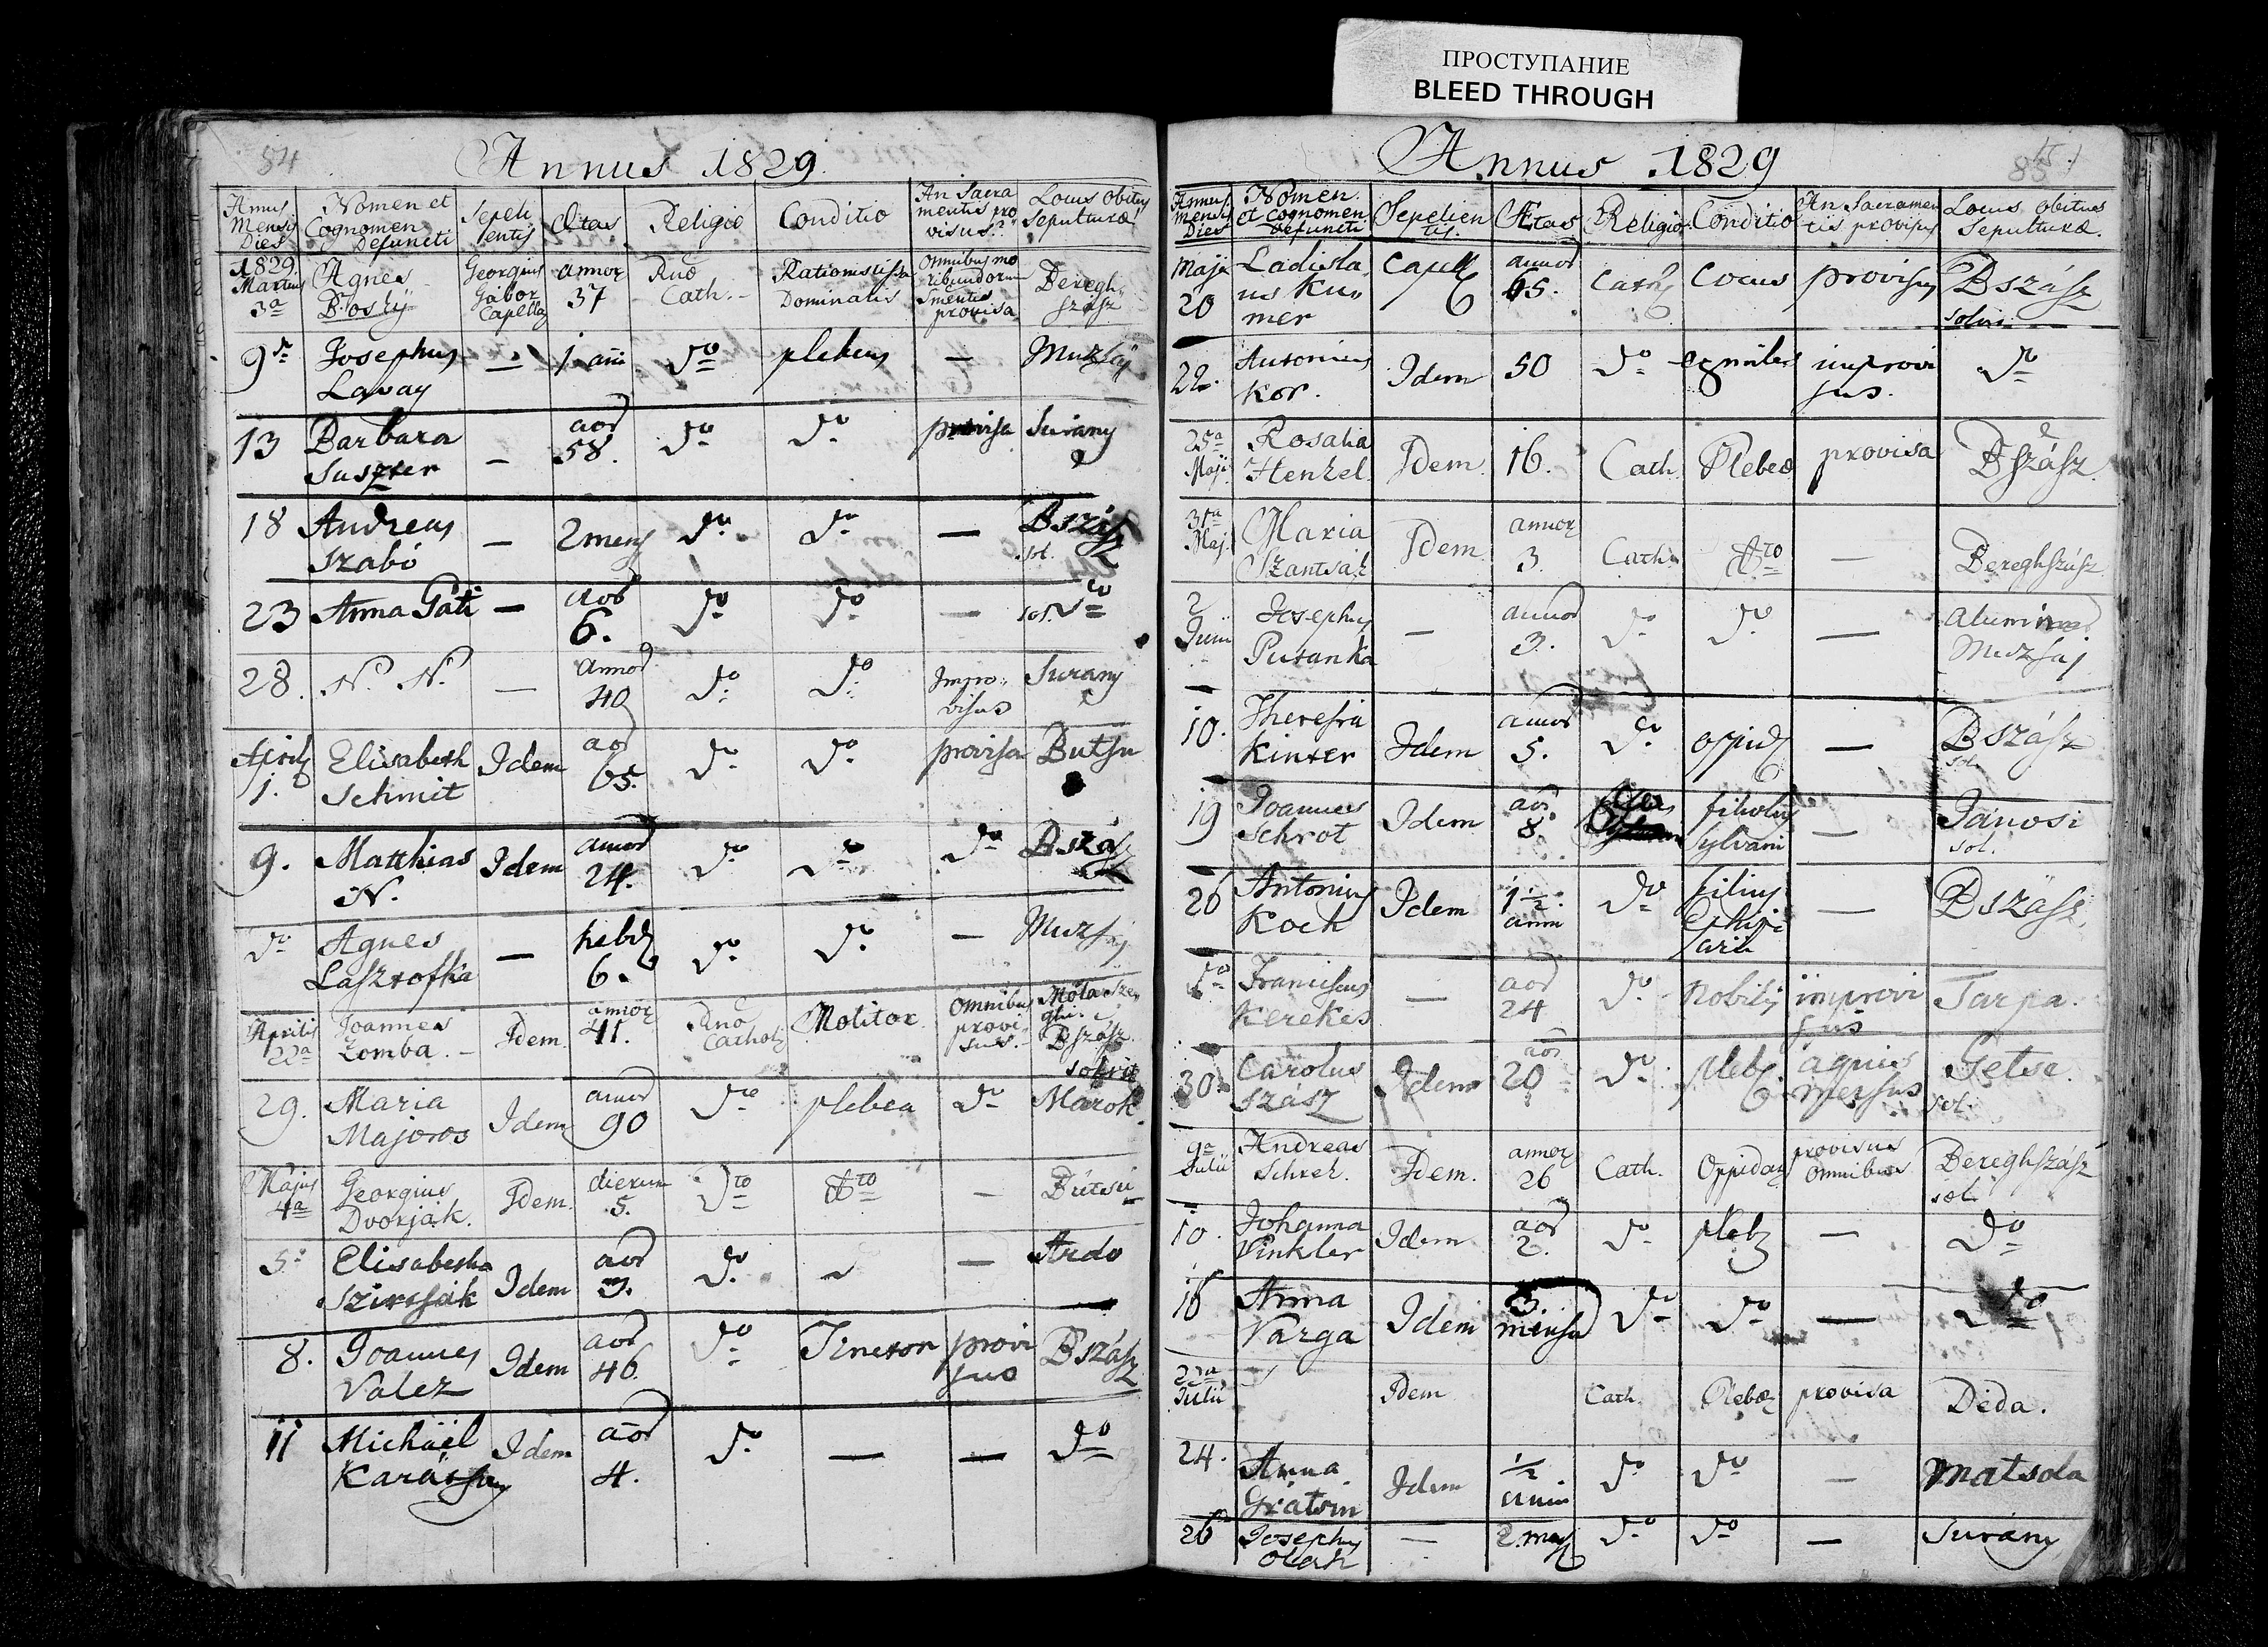 ПРОСТУПАНИЕ
BLEED THROUGH
84
Annus 1829
Annus Mensis Dies | Nomen et Cognomen Defuncti | Sepelientis | Ætas | Religio | Conditio | An Sacramentis provisus? | Locus Obitus Sepulturæ
1829 Martius 3a | Agnes | Georgius Gábor Capell | annor 37 | Cath. | Dominalis | Omnibus moribundorum provisa | Bereghszász
9 | Josephus Lavay | — | 1 ani | do | plebeus | — | Muzsaj
13 | Barbara Suszter | — | aor 58. | do | do | provisa | Surany
18 | Andreas Szabó | — | 2 mens | do | do | — | Bszász sol.
23 | Anna Gáti | — | aor 6. | do | do | — | sol. do
28. | N. N. | — | annor 40 | do | do | Improvisus | Surany
April 1. | Elisabeth Schmit | Idem | aor 65. | do | do | provisa | Butsu
9. | Matthias N. | Idem | annor 24. | do | do | do | Bszász
do | Agnes Lasztofka | — | hebd 6. | do | do | — | Muzsaj
Aprilis 22a | Joannes Zomba. | Idem | annor 41. | Catholi | Molitor | Omnibus provisus | Bszász
29. | Maria Majoros | Idem | annor 90 | do | plebea | do | Marok
Május 4a | Georgius Dvorják. | Idem. | dierum 5. | Dto | Dto | — | Bútsú
5. | Elisabetha | Idem | aor 3. | do | — | Ardo
8. | Joannes Valez | Idem | aor 46. | do | provisus | Bszász
11 | Michaël | Idem | aor 4. | do | — | — | do
85
Annus 1829
Annus Mensis Dies | Nomen et cognomen defuncti | Sepelientis. | Ætas | Religio | Conditio | An Sacramentis provisus | Locus Obitus Sepulturæ.
Maji 20 | Ladislaus Kumer | Capell | annor 65. | Cath | Cocus | provisus | Bszász
22. | Antonius Kor. | Idem | 50 | do | improvisus. | do
25a Maji | Rosalia Henkel | Idem. | 16. | Cath. | Plebeæ | provisa | Bszász.
31a Maj. | Maria Szantsák | Idem | annor 3. | Cath. | Dto | — | Bereghszász
2 Junii | Josephus Putanka | — | annor 3. | do | do | — | Muzsaj
10. | Theresia Kinter | Idem | annor 5. | do | oppid | — | Bszász sol.
19 | Joannes Schrot | Idem | aor 8. | filiolus Sylvani | — | Jánosi sol.
26 | Antonius Koch | Idem | 1 1/2 anni | do | filius | — | Bszász
do | Franciscus Kerekes | — | aor 24 | do | Nobilis | improvisus | Tarpa.
30 | Carolus Szász | Idem | aor 20 | do | pleb | aquis mersus | Getse. sol.
9a Julii | Andreas | Idem. | annor 26 | Cath. | Oppidan | provisus Omnibus | Bereghszász sol.
10. | Johanna Vinkler | Idem | aor 2. | do | pleb | — | do
16 | Anna Varga | Idem | 3. mensu | do | do | — | do
22a Julii | Idem | Cath. | Plebæ | provisa | Déda.
24. | Anna | Idem | 1/2 anni | do | do | — | Matsola
26 | Josephus Olah | — | 2. mens | do | do | — | Surány